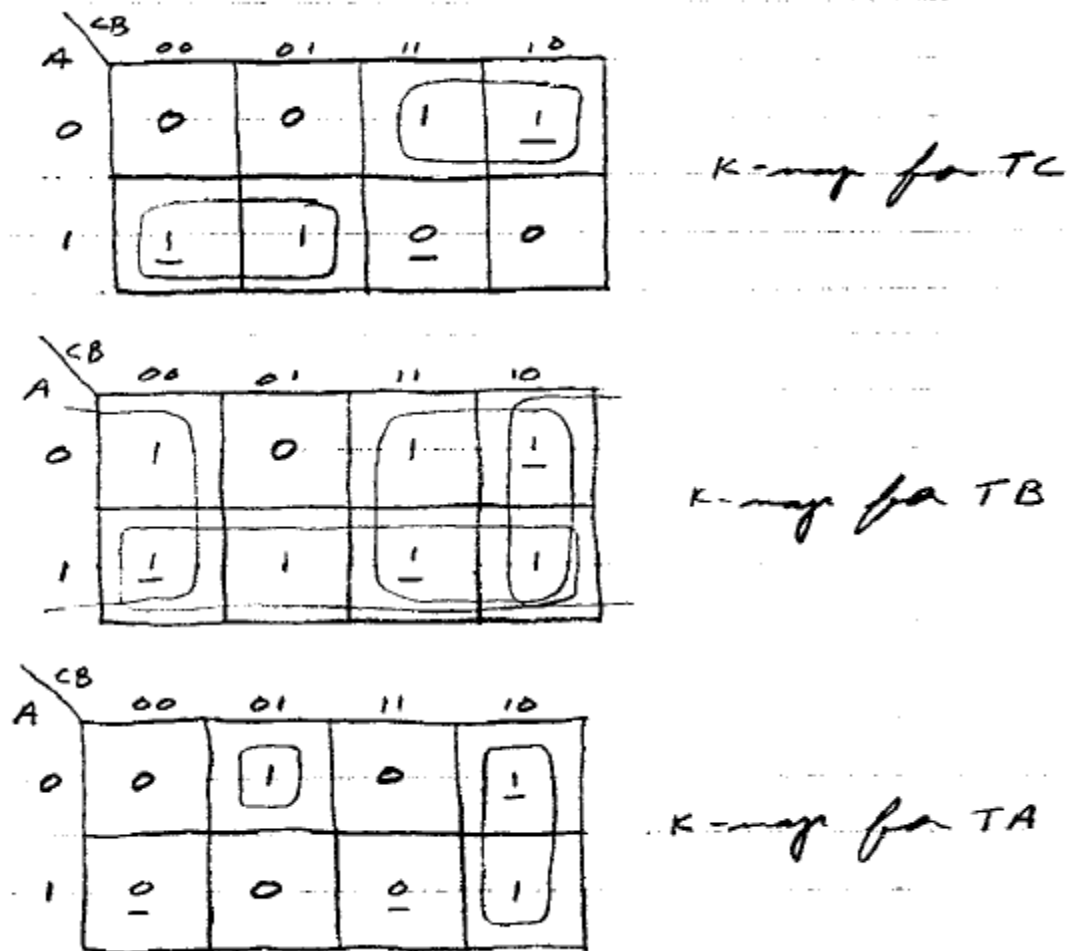 CB
A 00 01 11 10
0 0 0 1 1
1 1 1 0 0
K-map for TC
CB
A 00 01 11 10
0 1 0 1 1
1 1 1 1 1
K-map for TB
CB
A 00 01 11 10
0 0 1 0 1
1 0 0 0 1
K-map for TA